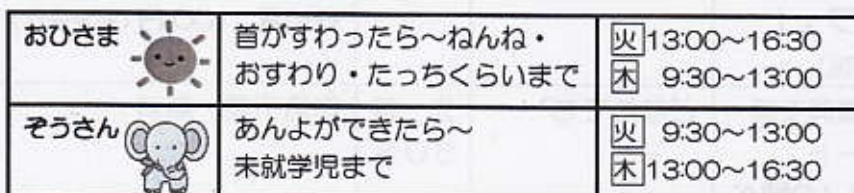 おひさま
首がすわったら〜ねんね・
おすわり・たっちくらいまで
火13:00〜16:30
木 9:30〜13:00
ぞうさん
あんよができたら〜
未就学児まで
火 9:30〜13:00
木13:00〜16:30